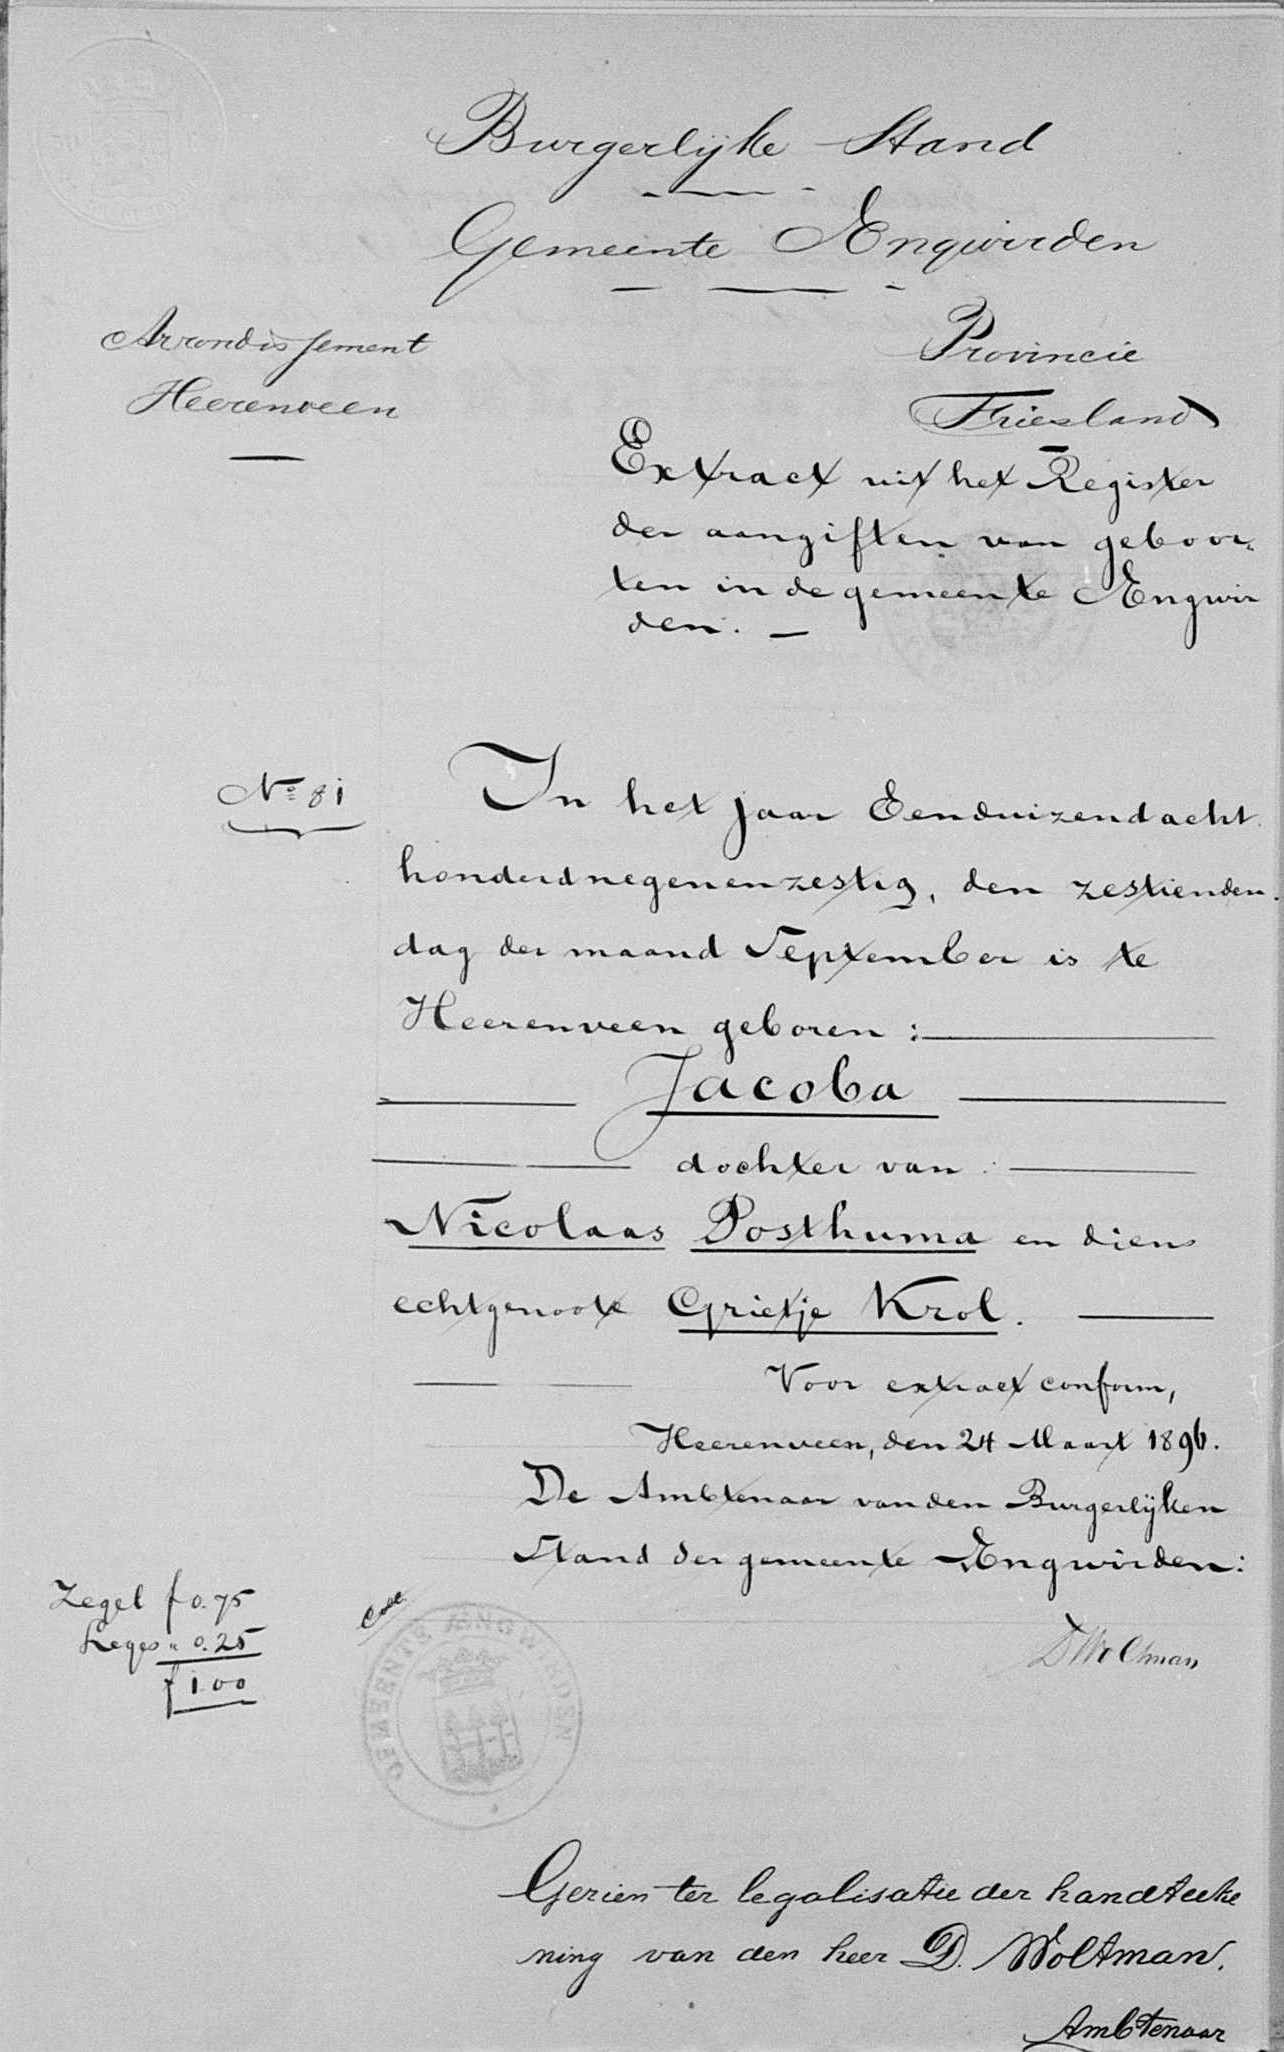 Burgerlijke Stand
Gemeente Ængwirden
Arrondissement
Heerenveen
Provincie
Friesland
Extract uit het Register
der aangiften van geboor-
ten in de gemeente Ængwir
den.
No 81
In het jaar Eenduizendacht
honderdnegenenzestig, den zestienden
dag der maand September is te
Heerenveen geboren :
Jacoba
dochter van :
Nicolaas Posthuma en diens
echtgenoote Grietje Krol.
Voor extract conform,
Heerenveen, den 24 Maart 1896.
De Ambtenaar van den Burgerlijken
Stand der gemeente Ængwirden:
Zegel f 0.75
Leges " 0.25
f 1.00
GEMEENTE ÆNGWIRDEN
DWoltman
Gezien ter legalisatie der handteeke
ning van den heer D. Woltman,
Ambtenaar